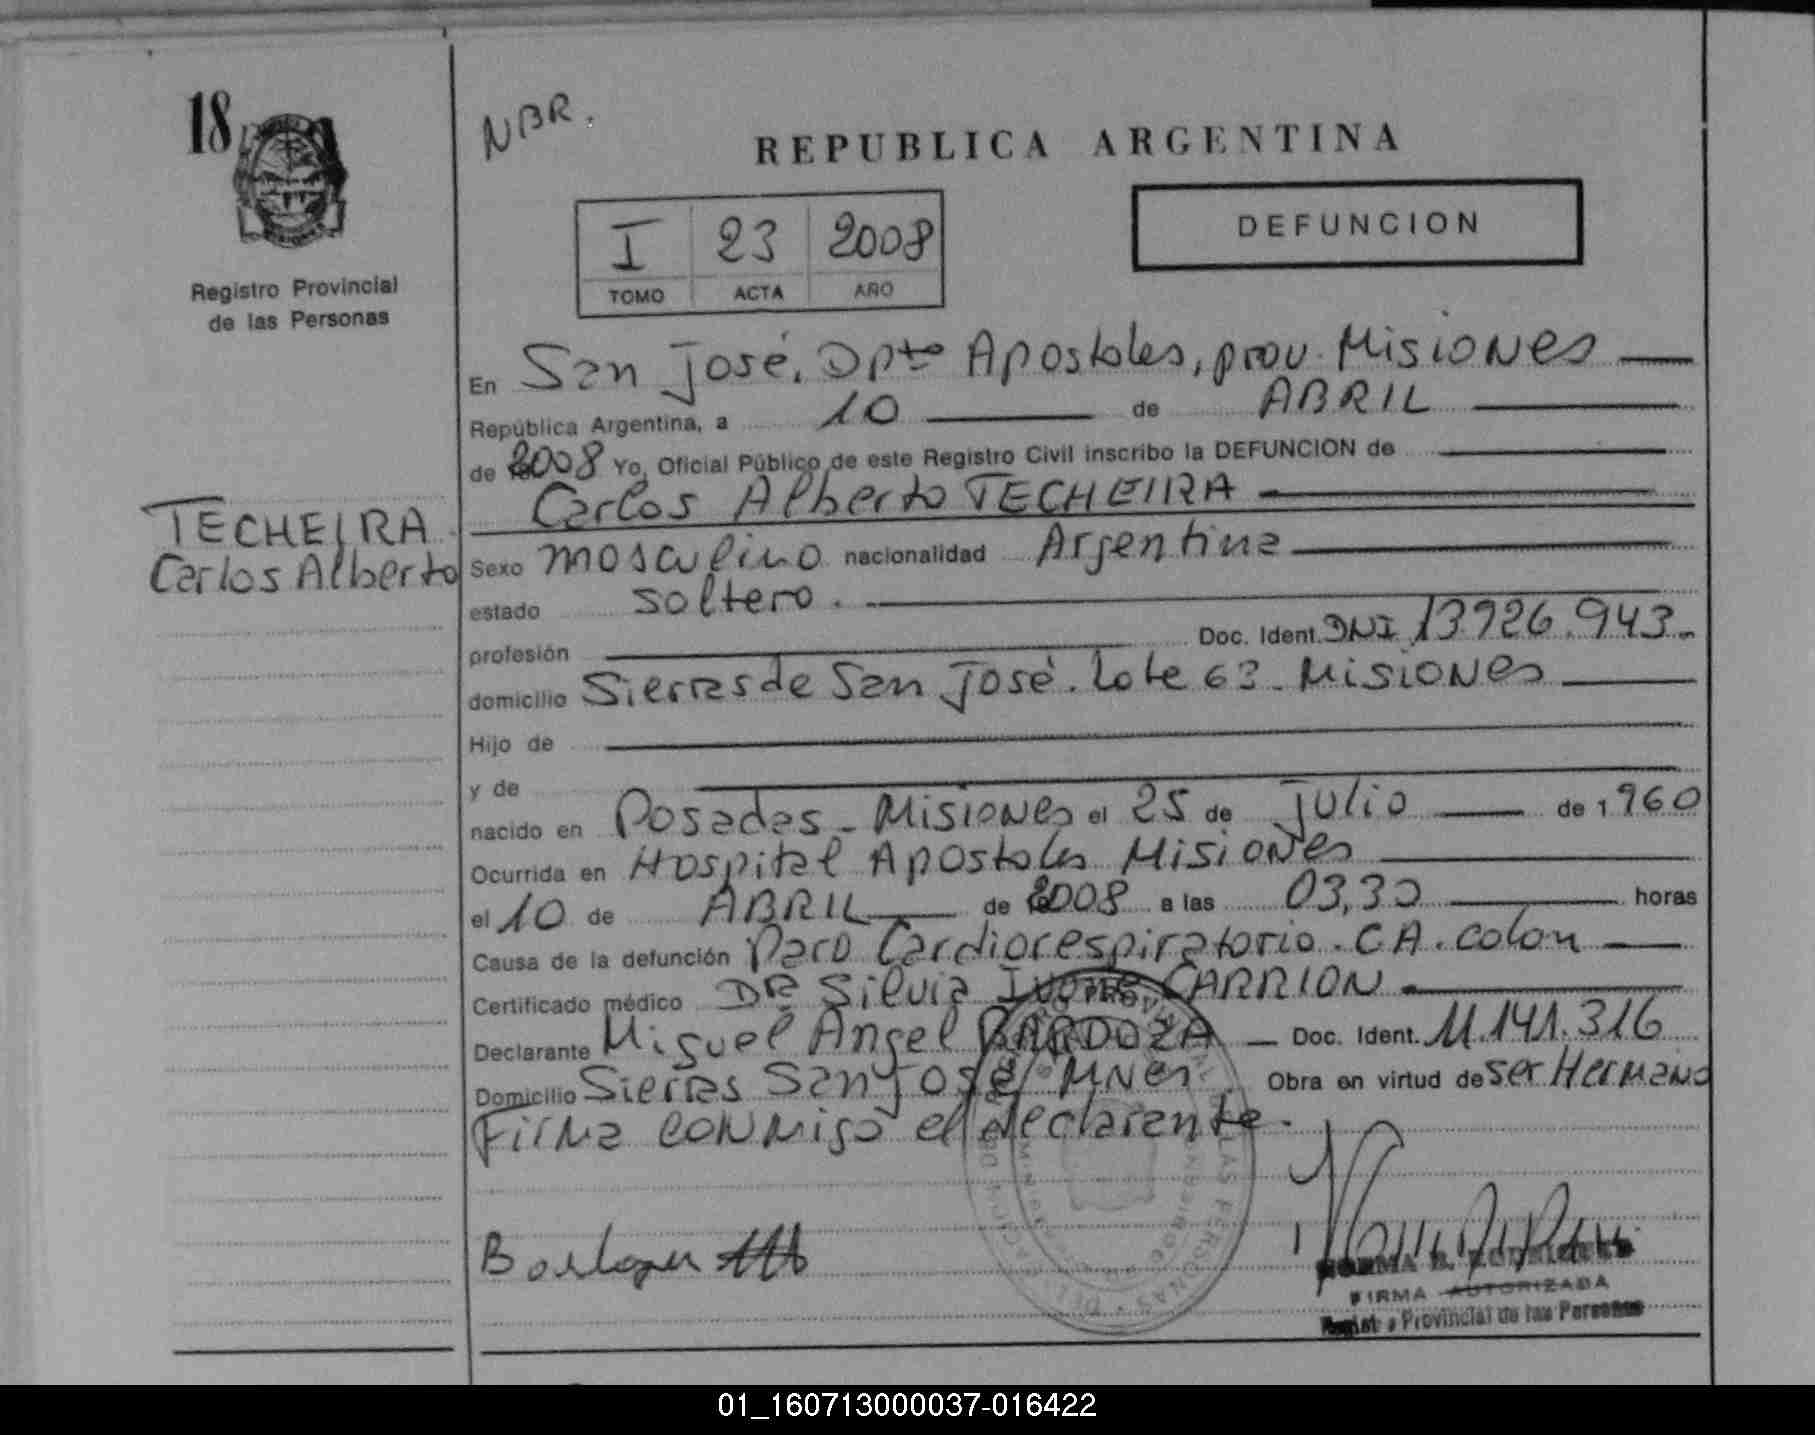 18
NBR.
REPUBLICA ARGENTINA
I 23 2008
TOMO ACTA AÑO
DEFUNCION
Registro Provincial
de las Personas
En San José, Dpto Apostoles, prov. Misiones
República Argentina, a 10 de ABRIL
de 2008 Yo, Oficial Público de este Registro Civil inscribo la DEFUNCION de
Carlos Alberto TECHEIRA
TECHEIRA
Carlos Alberto
Sexo masculino nacionalidad Argentina
estado soltero.
profesión Doc. Ident. DNI 13.926.943.-
domicilio Sierras de San José. Lote 63 - Misiones
Hijo de
y de
nacido en Posadas - Misiones el 25 de Julio de 1960
Ocurrida en Hospital Apostoles Misiones
el 10 de ABRIL de 2008 a las 03,30 horas
Causa de la defunción Paro Cardiorespiratorio. CA. colon
Certificado médico DRa Silvia Ivone CARRION
Declarante Miguel Angel BARDOZA - Doc. Ident. 11.141.316
Domicilio Sierras San José Mnes. Obra en virtud de ser Hermano
Firma conmigo el declarante.
NORMA B. RODRIGUEZ
FIRMA AUTORIZADA
Regist o Provincial de las Personas
01_160713000037-016422